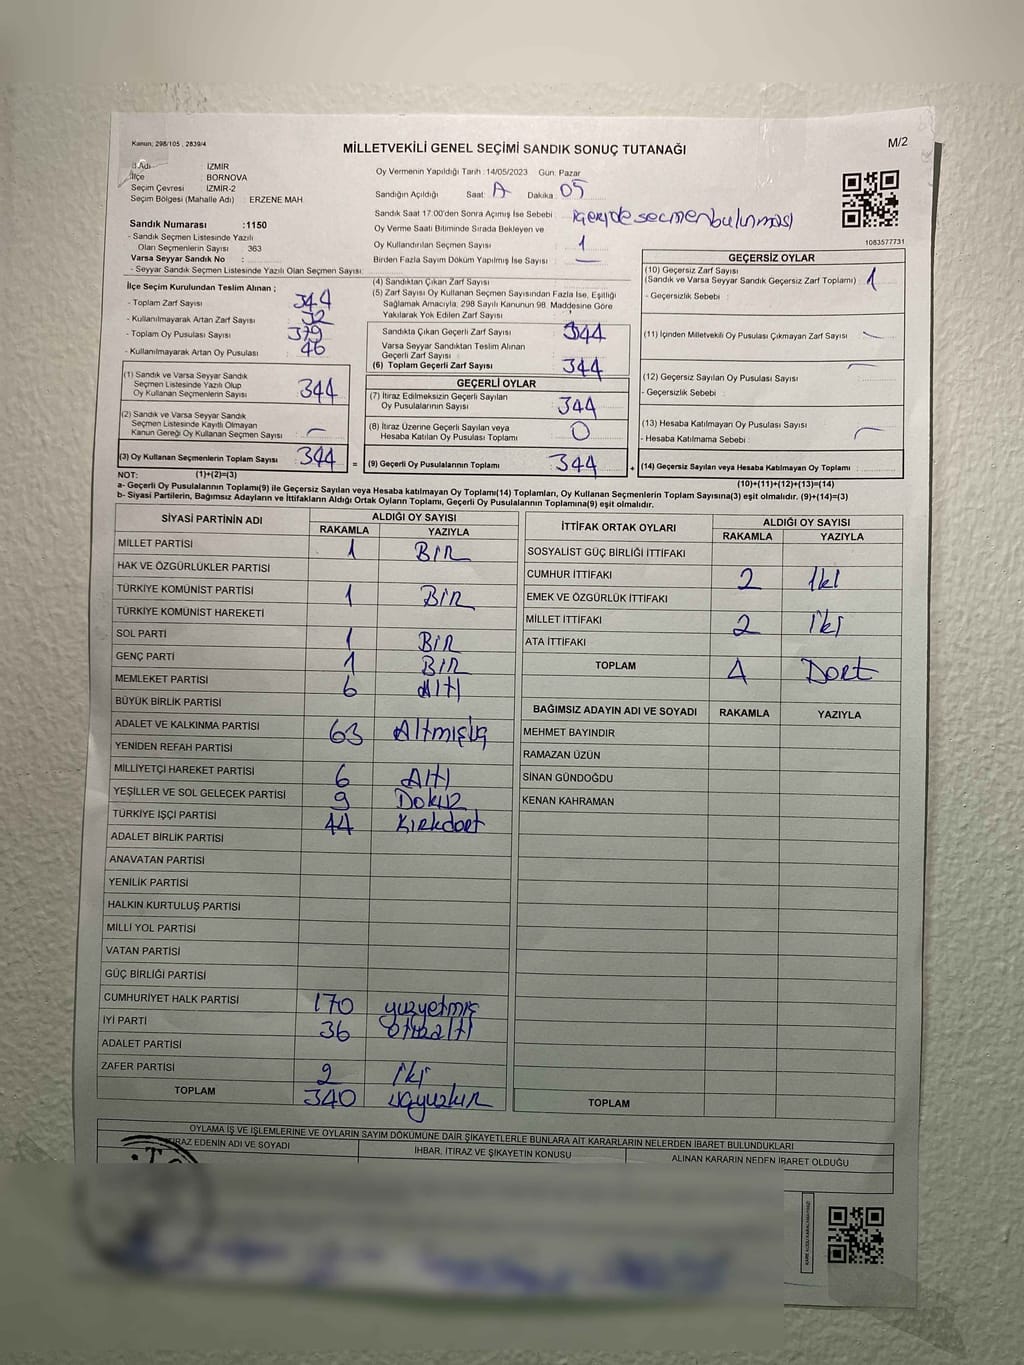 Kanun; 298/105 , 2839/4
MİLLETVEKİLİ GENEL SEÇİMİ SANDIK SONUÇ TUTANAĞI
M/2
İl Adı : İZMİR
İlçe : BORNOVA
Seçim Çevresi : İZMİR-2
Seçim Bölgesi (Mahalle Adı) : ERZENE MAH.
Sandık Numarası :1150
- Sandık Seçmen Listesinde Yazılı
Olan Seçmenlerin Sayısı : 363
Varsa Seyyar Sandık No :
- Seyyar Sandık Seçmen Listesinde Yazılı Olan Seçmen Sayısı:
Oy Vermenin Yapıldığı Tarih :14/05/2023 Gün: Pazar
Sandığın Açıldığı Saat: A Dakika: 05
Sandık Saat 17.00'den Sonra Açımış İse Sebebi : içeride seçmen bulunması
Oy Verme Saati Bitiminde Sırada Bekleyen ve
Oy Kullandırılan Seçmen Sayısı : 1
Birden Fazla Sayım Döküm Yapılmış İse Sayısı : —
1083577731
İlçe Seçim Kurulundan Teslim Alınan ;
- Toplam Zarf Sayısı : 344
- Kullanılmayarak Artan Zarf Sayısı : 32
- Toplam Oy Pusulası Sayısı : 379
- Kullanılmayarak Artan Oy Pusulası : 46
(1) Sandık ve Varsa Seyyar Sandık
Seçmen Listesinde Yazılı Olup
Oy Kullanan Seçmenlerin Sayısı : 344
(2) Sandık ve Varsa Seyyar Sandık
Seçmen Listesinde Kayıtlı Olmayan
Kanun Gereği Oy Kullanan Seçmen Sayısı : —
(3) Oy Kullanan Seçmenlerin Toplam Sayısı : 344 =
(4) Sandıktan Çıkan Zarf Sayısı :
(5) Zarf Sayısı Oy Kullanan Seçmen Sayısından Fazla İse, Eşitliği
Sağlamak Amacıyla; 298 Sayılı Kanunun 98. Maddesine Göre
Yakılarak Yok Edilen Zarf Sayısı :
Sandıkta Çıkan Geçerli Zarf Sayısı : 344
Varsa Seyyar Sandıktan Teslim Alınan
Geçerli Zarf Sayısı :
(6) Toplam Geçerli Zarf Sayısı : 344
GEÇERLİ OYLAR
(7) İtiraz Edilmeksizin Geçerli Sayılan
Oy Pusulalarının Sayısı : 344
(8) İtiraz Üzerine Geçerli Sayılan veya
Hesaba Katılan Oy Pusulası Toplamı : 0
(9) Geçerli Oy Pusulalarının Toplamı : 344 +
GEÇERSİZ OYLAR
(10) Geçersiz Zarf Sayısı
(Sandık ve Varsa Seyyar Sandık Geçersiz Zarf Toplamı) : 1
- Geçersizlik Sebebi :
(11) İçinden Milletvekili Oy Pusulası Çıkmayan Zarf Sayısı : —
(12) Geçersiz Sayılan Oy Pusulası Sayısı : —
- Geçersizlik Sebebi :
(13) Hesaba Katılmayan Oy Pusulası Sayısı : —
- Hesaba Katılmama Sebebi :
(14) Geçersiz Sayılan veya Hesaba Katılmayan Oy Toplamı :
(10)+(11)+(12)+(13)=(14)
NOT: (1)+(2)=(3)
a- Geçerli Oy Pusulalarının Toplamı(9) ile Geçersiz Sayılan veya Hesaba katılmayan Oy Toplamı(14) Toplamları, Oy Kullanan Seçmenlerin Toplam Sayısına(3) eşit olmalıdır. (9)+(14)=(3)
b- Siyasi Partilerin, Bağımsız Adayların ve İttifakların Aldığı Ortak Oyların Toplamı, Geçerli Oy Pusulalarının Toplamına(9) eşit olmalıdır.
SİYASİ PARTİNİN ADI ALDIĞI OY SAYISI
RAKAMLA YAZIYLA
MİLLET PARTİSİ 1 BİR
HAK VE ÖZGÜRLÜKLER PARTİSİ
TÜRKİYE KOMÜNİST PARTİSİ 1 BİR
TÜRKİYE KOMÜNİST HAREKETİ
SOL PARTİ 1 BİR
GENÇ PARTİ 1 BİR
MEMLEKET PARTİSİ 6 Altı
BÜYÜK BİRLİK PARTİSİ
ADALET VE KALKINMA PARTİSİ 63 Altmışüç
YENİDEN REFAH PARTİSİ
MİLLİYETÇİ HAREKET PARTİSİ 6 Altı
YEŞİLLER VE SOL GELECEK PARTİSİ 9 Dokuz
TÜRKİYE İŞÇİ PARTİSİ 44 Kırkdört
ADALET BİRLİK PARTİSİ
ANAVATAN PARTİSİ
YENİLİK PARTİSİ
HALKIN KURTULUŞ PARTİSİ
MİLLİ YOL PARTİSİ
VATAN PARTİSİ
GÜÇ BİRLİĞİ PARTİSİ
CUMHURİYET HALK PARTİSİ 170 yüzyetmiş
İYİ PARTİ 36 otuzaltı
ADALET PARTİSİ
ZAFER PARTİSİ 2 iki
TOPLAM 340 üçyüzkırk
İTTİFAK ORTAK OYLARI ALDIĞI OY SAYISI
RAKAMLA YAZIYLA
SOSYALİST GÜÇ BİRLİĞİ İTTİFAKI
CUMHUR İTTİFAKI 2 iki
EMEK VE ÖZGÜRLÜK İTTİFAKI
MİLLET İTTİFAKI 2 iki
ATA İTTİFAKI
TOPLAM 4 Dört
BAĞIMSIZ ADAYIN ADI VE SOYADI RAKAMLA YAZIYLA
MEHMET BAYINDIR
RAMAZAN ÜZÜN
SİNAN GÜNDOĞDU
KENAN KAHRAMAN
TOPLAM
OYLAMA İŞ VE İŞLEMLERİNE VE OYLARIN SAYIM DÖKÜMÜNE DAİR ŞİKAYETLERLE BUNLARA AİT KARARLARIN NELERDEN İBARET BULUNDUKLARI
İTİRAZ EDENİN ADI VE SOYADI İHBAR, İTİRAZ VE ŞİKAYETİN KONUSU ALINAN KARARIN NEDEN İBARET OLDUĞU